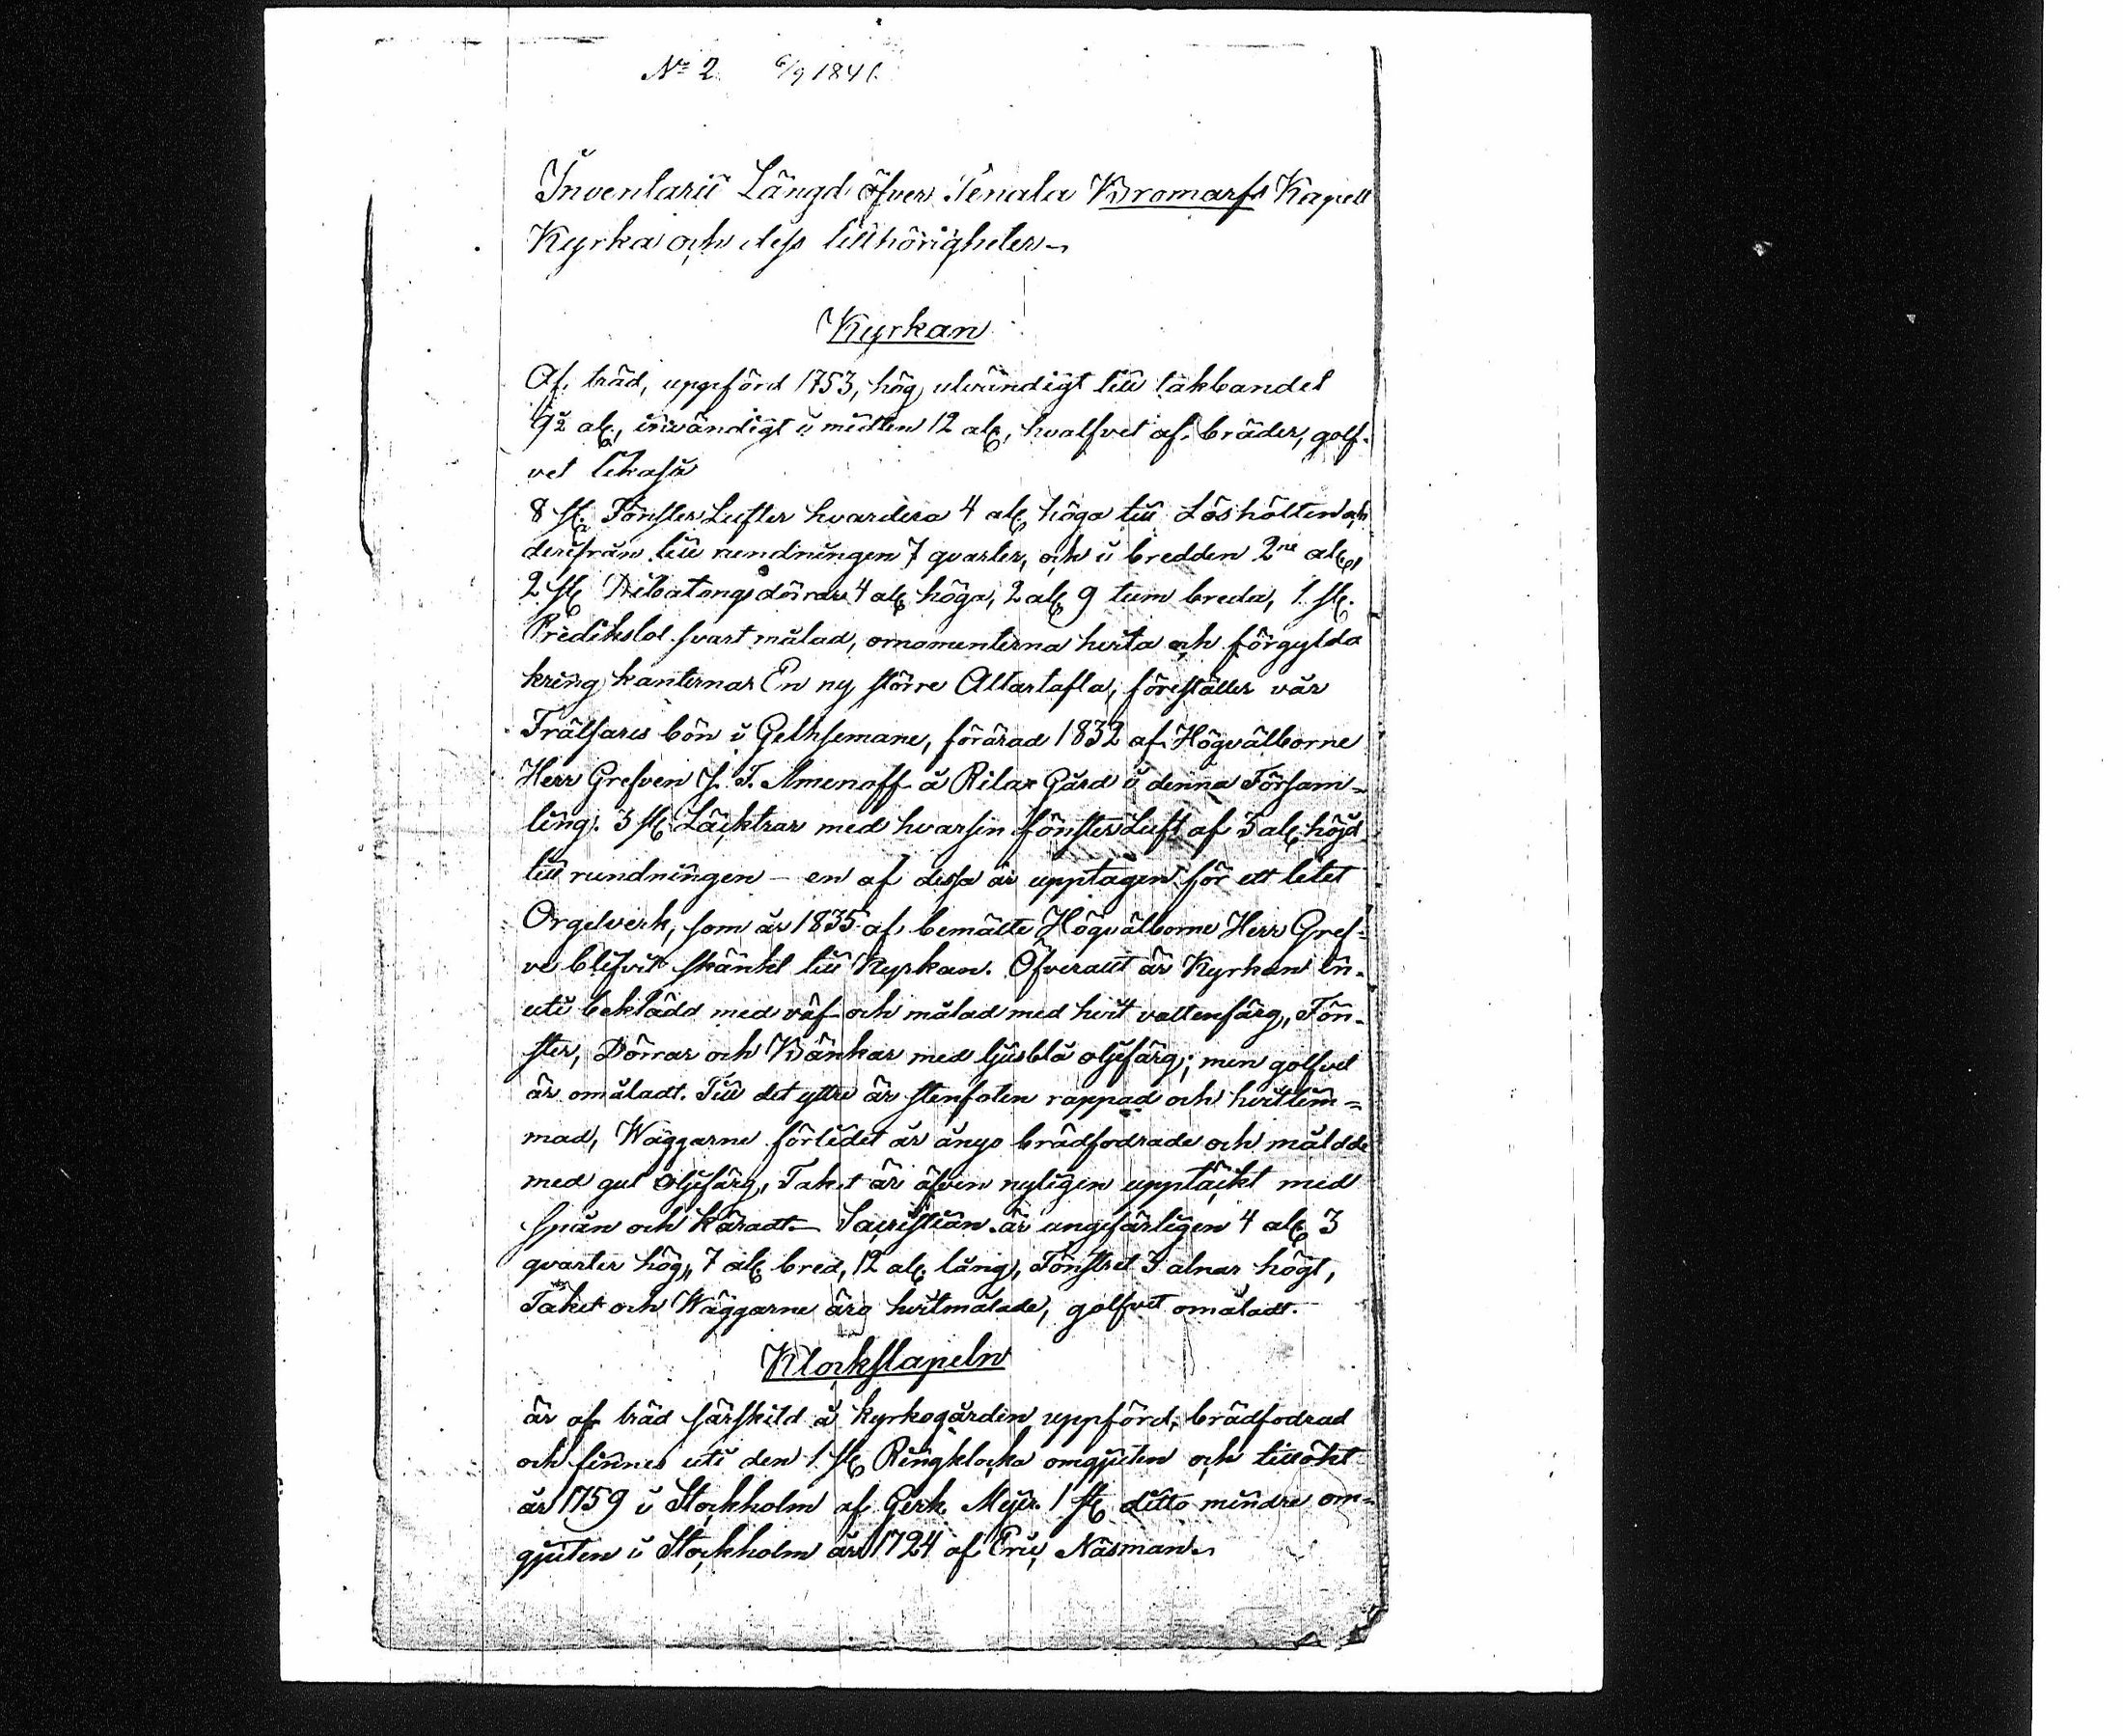 No 2. 6/9 1841.
Inventarii Längd öfver Tenala Bromarfs Kapell
Kyrka och dess tillhörigheter
Kyrkan
Af träd, uppförd 1753, hög utvändigt till takbandet
9½ aln, invändigt i midten 12 aln, hvalfvet af bräder, golf-
vet likaså
8 st. Fönster Lufter hvardera 4 aln höga till Löshölten och
derifrån till rundningen 7 qvarter, och i bredden 2ne aln,
2 st. dörrar 4 aln höga, 2 aln 9 tum breda, 1 st.
Predikstol svart målad, ornamenterna hvita och förgylda
kring kanterna. En ny större Altartafla, föreställer vår
Frälsares bön i Gethsemane, förärad 1832 af Högvälborne
Herr Grefven G. F. Armenoff å Rilax Gård i denna Försam-
ling. 3 st. Läcktrar med hvarsin fönster Luft af 3 aln höjd
till rundningen – en af dessa är upptagen för ett litet
Orgelverk, som år 1835 af bemälte Högvälborne Herr Gref-
ve blifvit skänkt till Kyrkan. Öfverallt är Kyrkan in-
uti beklädd med väf och målad med hvit vattenfärg, Fön-
ster, Dörrar och Bänkar med ljusblå oljefärg; men golfvet
är omåladt. Till det yttre är stenfoten rappad och hvitlim-
mad, Wäggarne förlidet år ånyo brädfodrade och målade
med gul Oljefärg, Taket är äfven nyligen upptäckt med
Spån och tjäradt. – Sacristian är ungefärligen 4 aln 3
qvarter hög, 7 aln bred, 12 aln lång, Fönstret 3 alnar högt,
Taket och Wäggarne äro hvitmålade, golfvet omåladt.
Klockstapeln
är af träd särskild å kyrkogården uppförd, brädfodrad
och finnes uti den 1 st. Ringklocka omgjuten och tillökt
år 1759 i Stockholm af Gerh. Meyer. 1 st. ditto mindre om-
gjuten i Stockholm år 1724 af Eric Näsman.